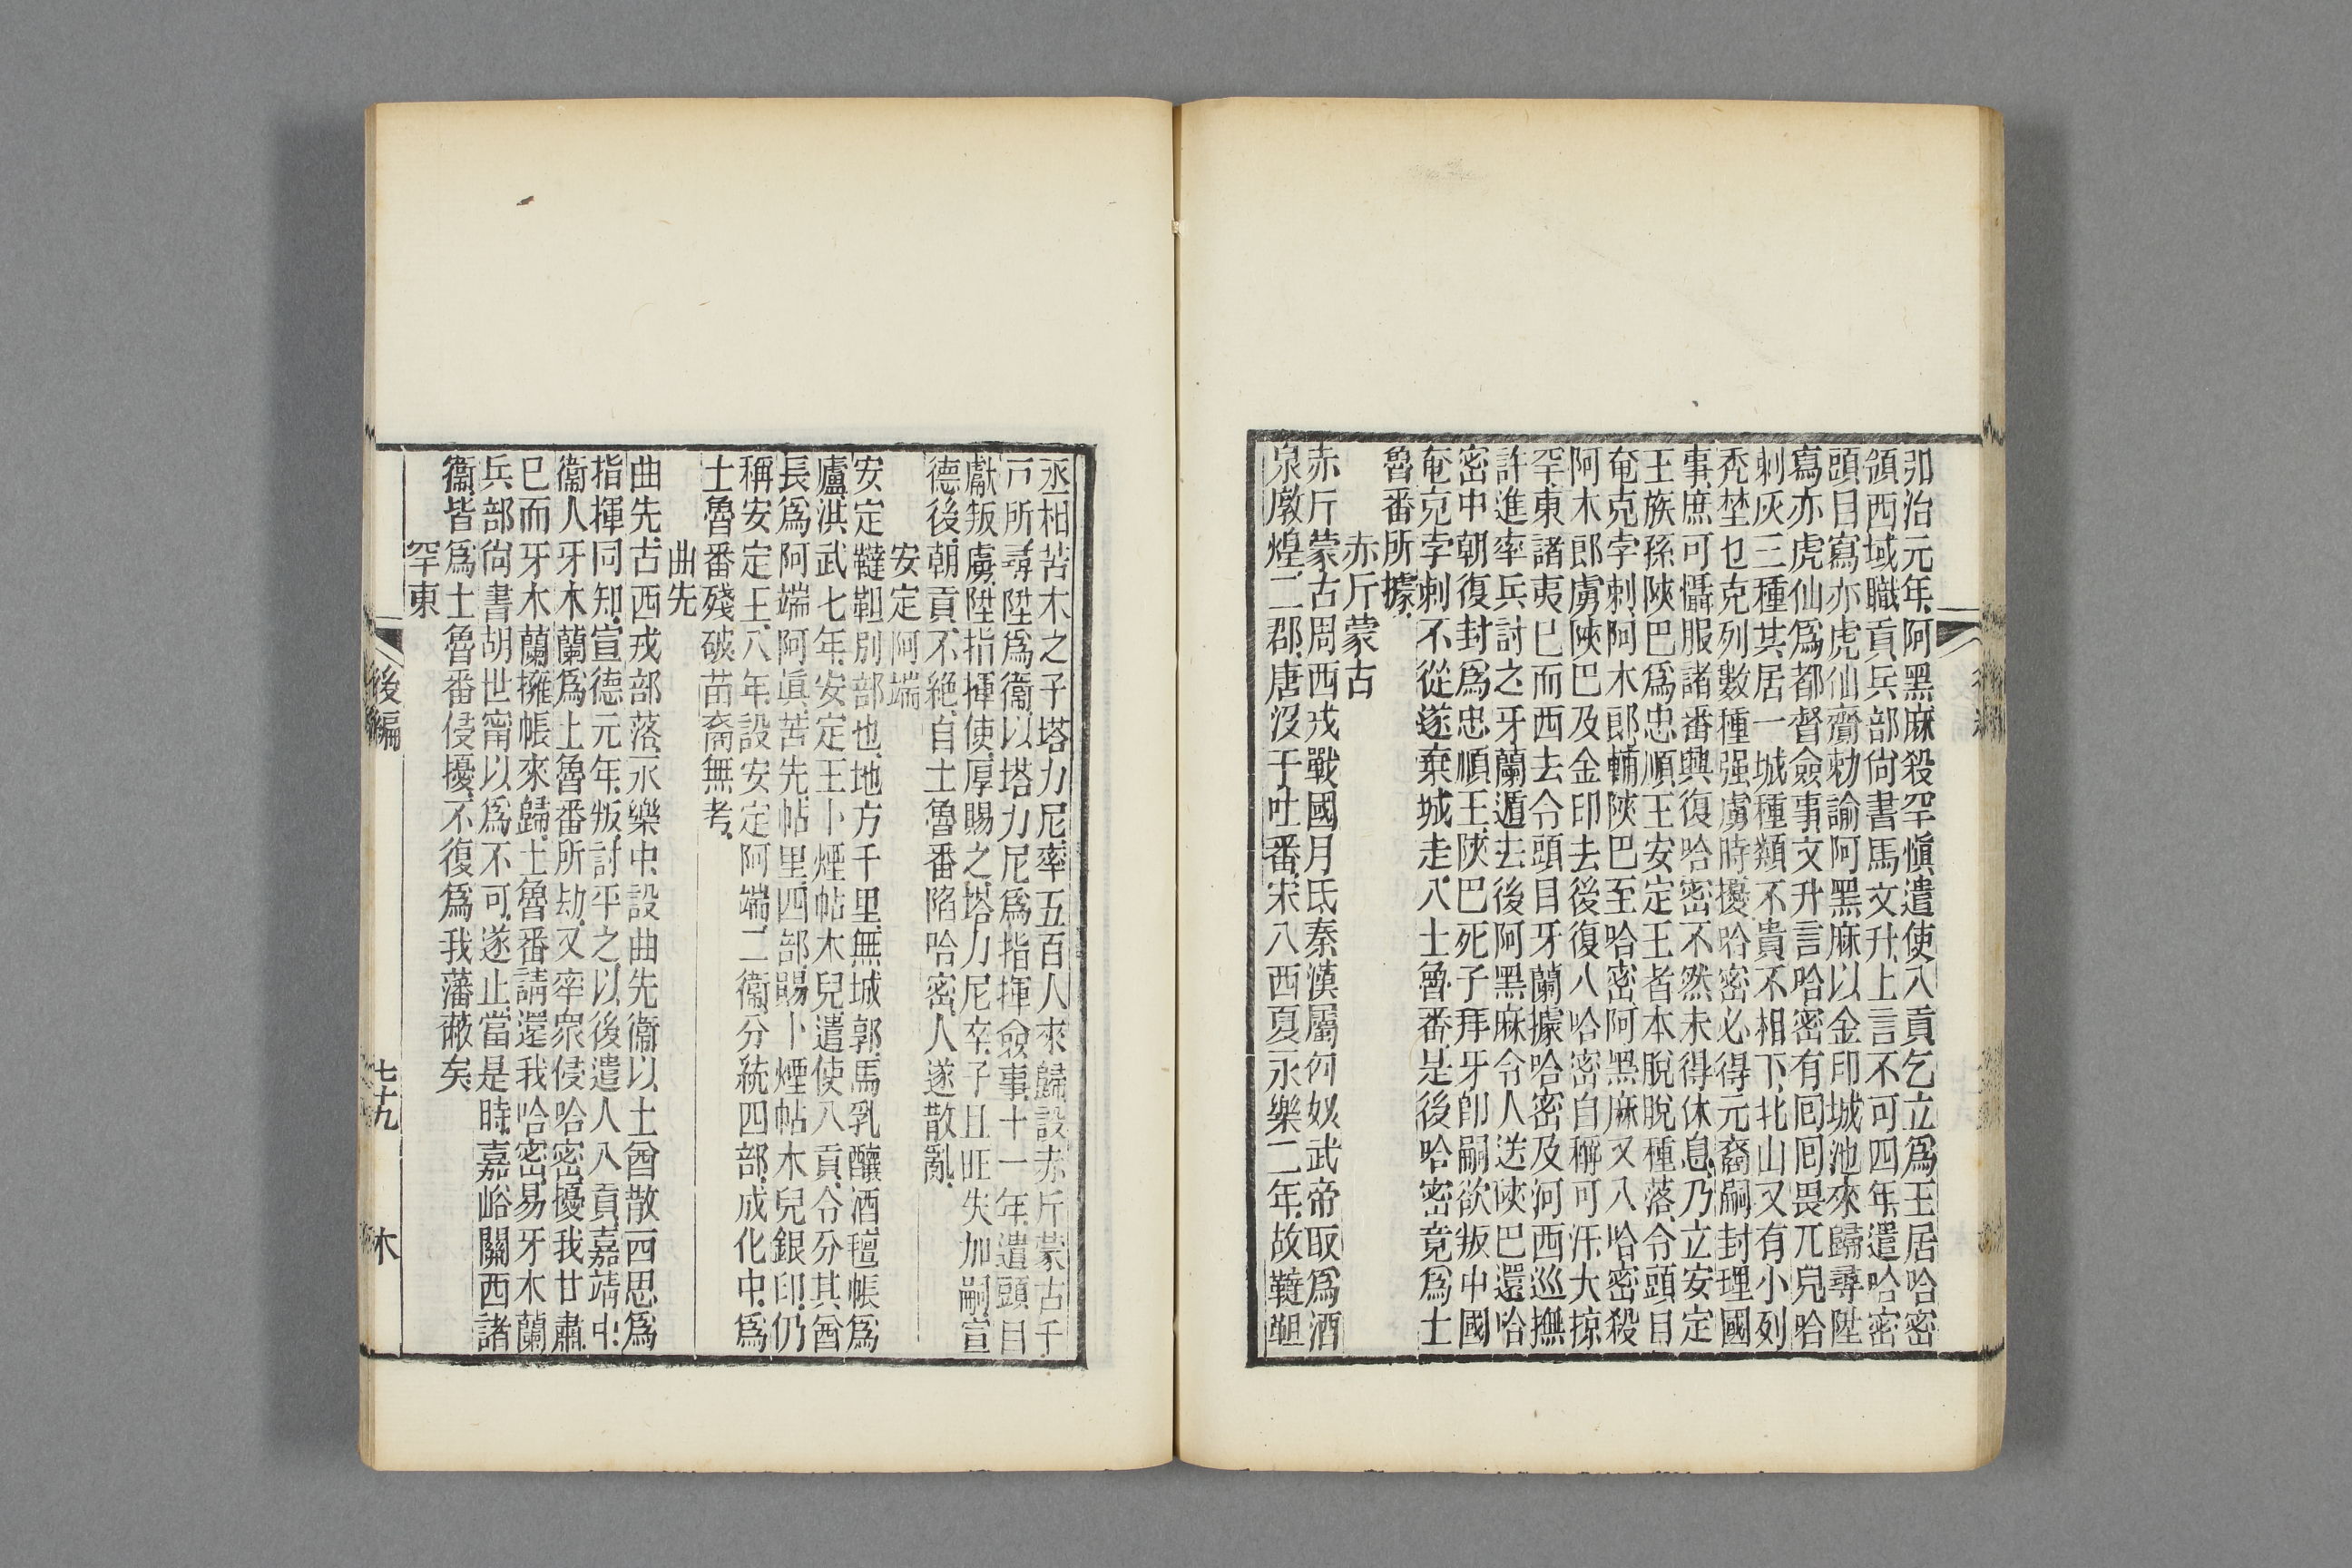 弘治元年阿黑麻殺罕愼遣使入貢乞立爲王居哈密
領西域職貢兵部尙書馬文升上言不可四年遣哈密
頭目寫亦虎仙齎勅諭阿黑麻以金印城池來歸尋陞
寫亦虎仙爲都督僉事文升言哈密有囘囘畏兀兒哈
剌灰三種共居一城種類不貴不相下北山又有小列
禿埜乜克列數種强虜時擾哈密必得元裔嗣封理國
事庶可懾服諸番興復哈密不然未得休息乃立安定
王族孫陜巴爲忠順王安定王者本脫脫種落令頭目
奄克孛剌阿木郎輔陜巴至哈密阿黑麻又入哈密殺
阿木郎虜陜巴及金印去後復入哈密自稱可汗大掠
罕東諸夷已而西去令頭目牙蘭據哈密及河西巡撫
許進率兵討之牙蘭遁去後阿黑麻令人送陜巴還哈
密中朝復封爲忠順王陜巴死子拜牙卽嗣欲叛中國
奄克孛剌不從遂棄城走入土魯番是後哈密竟爲土
魯番所據
赤斤蒙古
赤斤蒙古周西戎戰國月氏秦漢屬匈奴武帝取爲酒
泉燉煌二郡唐沒于吐番宋入西夏永樂二年故韃靼
丞相苦木之子塔力尼率五百人來歸設赤斤蒙古千
戸所尋陞爲衞以塔力尼爲指揮僉事十一年遣頭目
獻叛虜陞指揮使厚賜之塔力尼卒子且旺失加嗣宣
德後朝貢不絶自土魯番陷哈密人遂散亂
安定 阿端
安定韃靼別部也地方千里無城郭馬乳釀酒氊帳爲
廬洪武七年安定王卜煙帖木兒遣使入貢令分其酋
長爲阿端阿眞苦先帖里四部賜卜煙帖木兒銀印仍
稱安定王八年設安定阿端二衞分統四部成化中爲
土魯番殘破苗裔無考
曲先
曲先古西戎部落永樂中設曲先衞以土酋散西思爲
指揮同知宣德元年叛討平之以後遣人入貢嘉靖中
衞人牙木蘭爲土魯番所劫又率衆侵哈密擾我甘肅
已而牙木蘭擁帳來歸土魯番請還我哈密易牙木蘭
兵部尙書胡世甯以爲不可遂止當是時嘉峪關西諸
衞皆爲土魯番侵擾不復爲我藩蔽矣
罕東
後編
七十九
木